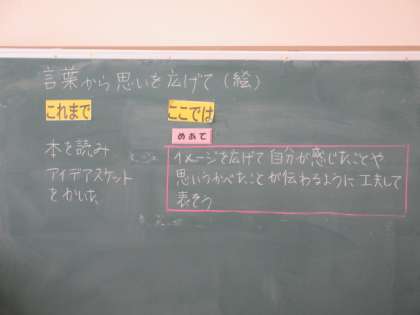 言葉から思いを広げて（絵）
これまで
本を読み
アイデアスケット
をかいた
ここでは
めあて
イメージを広げて自分が感じたことや
思いうかべたことが伝わるように工夫して
表そう